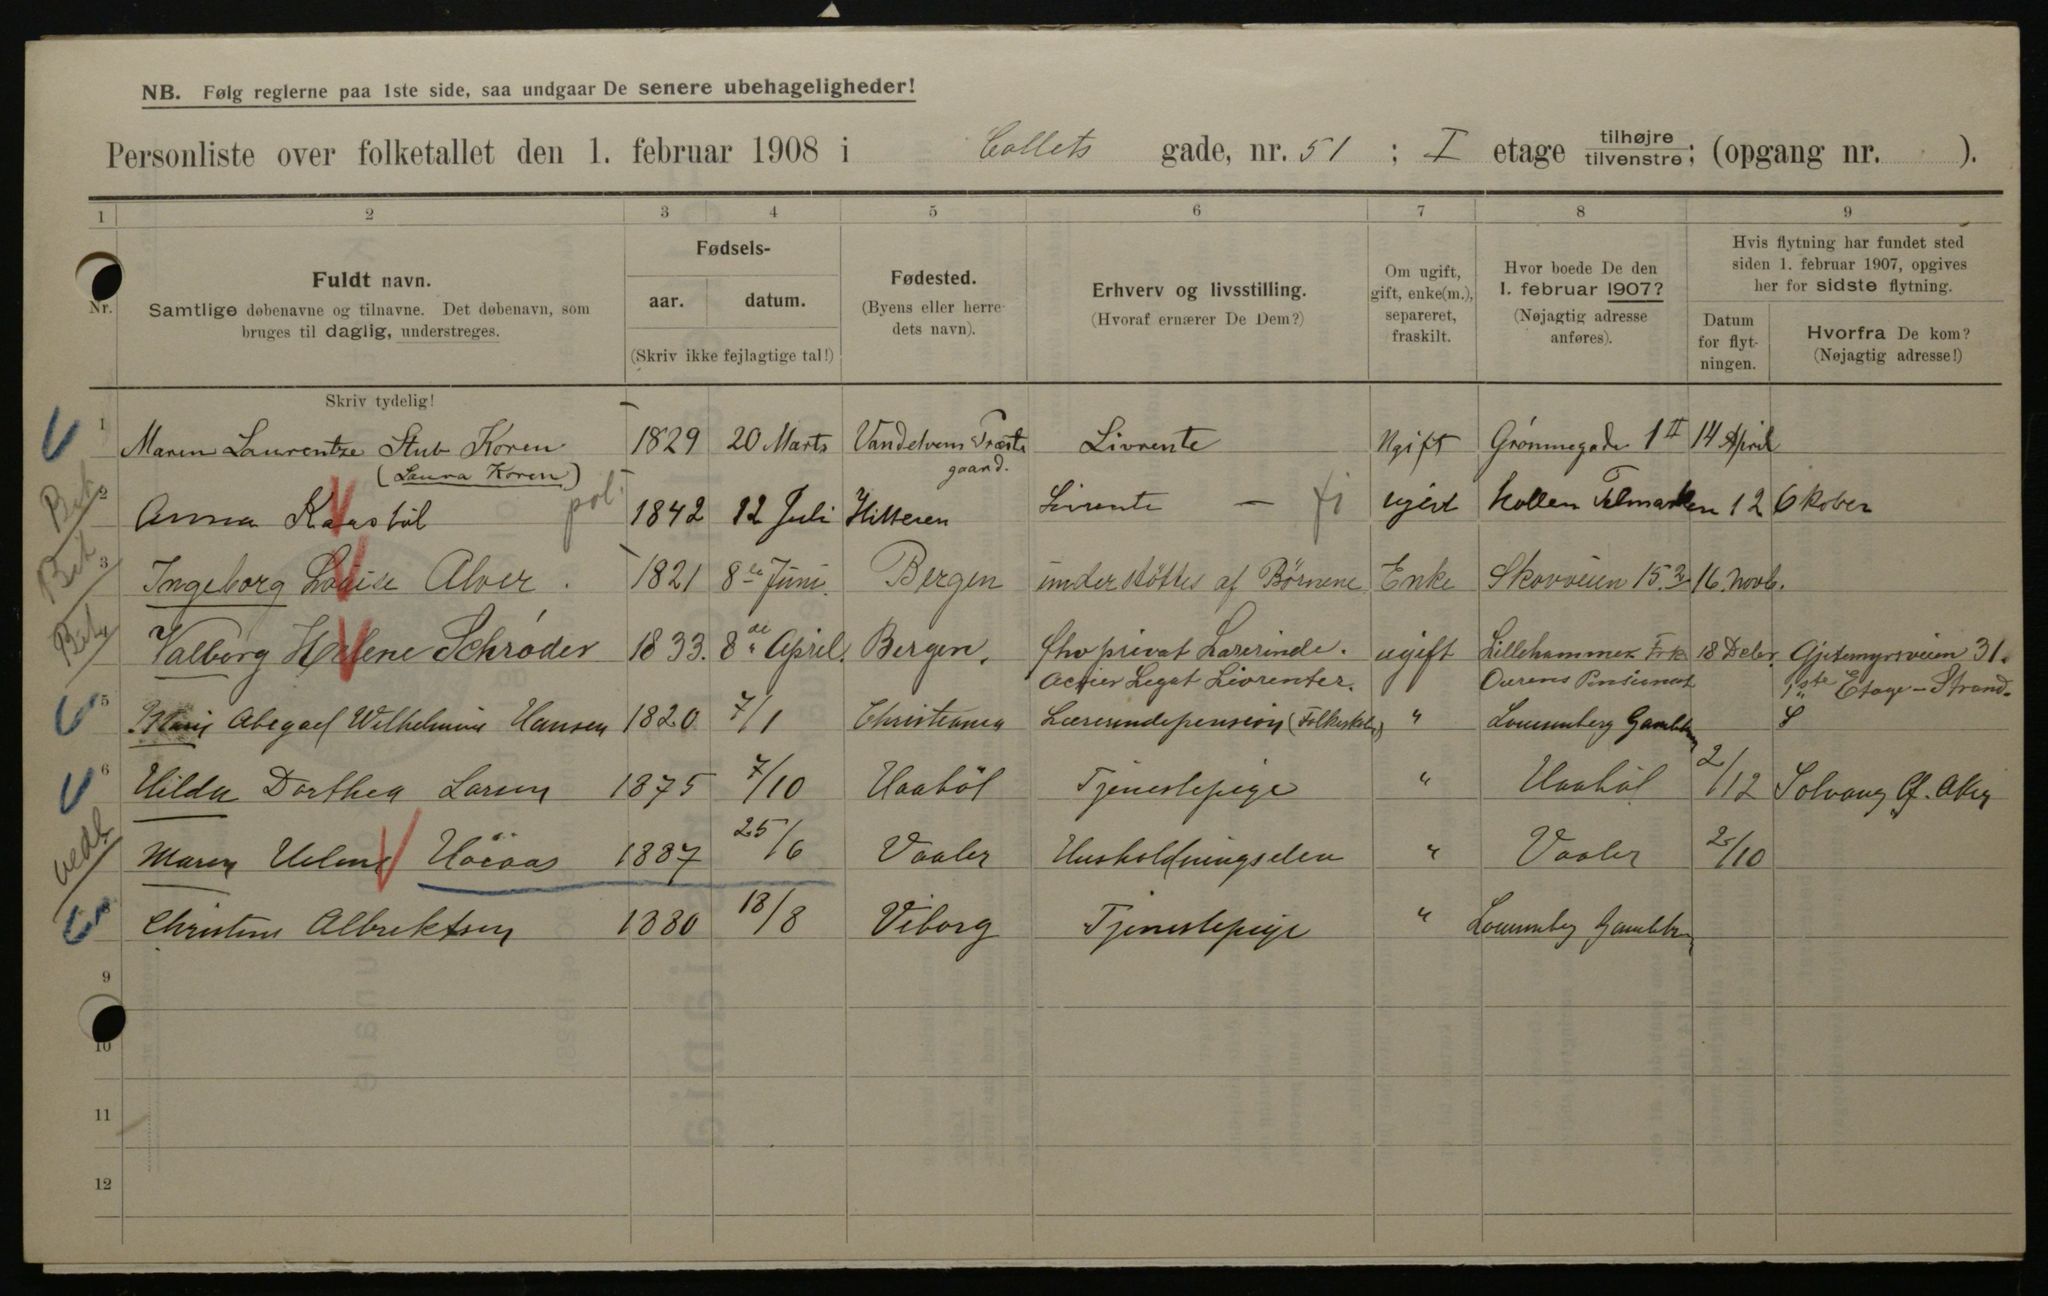 NB. Følg reglerne paa 1ste side, saa undgaar De senere ubehageligheder!
Personliste over folketallet den 1. februar 1908 i Collets gade, nr. 51 ; I etage tilhøjre tilvenstre; (opgang nr. ).
1 2 3 4 5 6 7 8 9
Nr.
Fuldt navn.
Samtlige døbenavne og tilnavne. Det døbenavn, som
bruges til daglig, understreges.
Fødsels-
aar. datum.
(Skriv ikke fejlagtige tal!)
Fødested.
(Byens eller herre-
dets navn).
Erhverv og livsstilling.
(Hvoraf ernærer De Dem?)
Om ugift,
gift, enke(m.),
separeret,
fraskilt.
Hvor boede De den
1. februar 1907?
(Nøjagtig adresse
anføres).
Hvis flytning har fundet sted
siden 1. februar 1907, opgives
her for sidste flytning.
Datum
for flyt-
ningen.
Hvorfra De kom?
(Nøjagtig adresse!)
Skriv tydelig!
1 Maren Laurentze Stub Koren 1829 20 Marts Vandelvens Præste Livrente Ugift Grønnegade 1 II 14 April
(Laura Koren) gaard.
2 Anna Kaasbøl pol. 1842 12 Juli Hitteren Livrente — fi ugivt 12 Oktober
3 Ingeborg Louise Alver. 1821 8de Juni. Bergen understøttes af Børnene Enke Skovveien 15.3 16. Novb.
Valborg Helene Schrøder 1833. 8de April. Bergen. fhv privat Lærerinde. ugift Lillehammer Frk 18 Debr. Gjetemyrsveien 31.
Legat Livrenter. Ourens Pensionat 1ste Etage – Strand-
5 Abegael Wilhelmine Hansen 1820 7/1 Christiania Lærerindepension (Folkeskolen) "
6 Hilda Dorthea Larsen 1875 7/10 Haabøl Tjenestepige " Haabøl 2/12 Solvang Aker
Maren Helene Høiaas 1887 25/6 Vaaler Husholdningselev " Vaaler 2/10
Christine Albrektsen 1880 18/8 Viborg Tjenestepige "
9
10
11
12